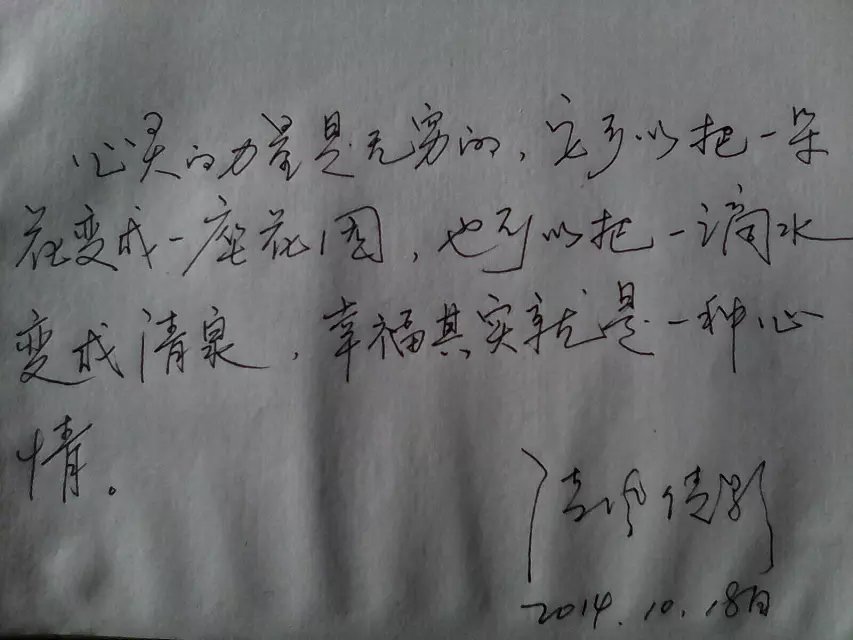 心灵的力量是无穷的，它可以把一朵
花变成一座花园，也可以把一滴水
变成清泉，幸福其实就是一种心
情。
清风倩影
2014.10.18日